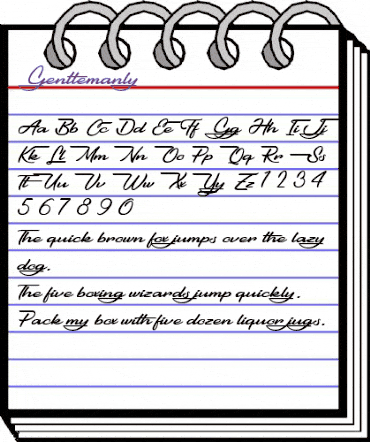 Genttemanly
Aa Bb Cc Dd Ee Ff Gg Hh Ii Jj
Kk Ll Mm Nn Oo Pp Qq Rr Ss
Tt Uu Vv Ww Xx Yy Zz 1 2 3 4
5 6 7 8 9 0
The quick brown fox jumps over the lazy
dog.
The five boxing wizards jump quickly.
Pack my box with five dozen liquor jugs.